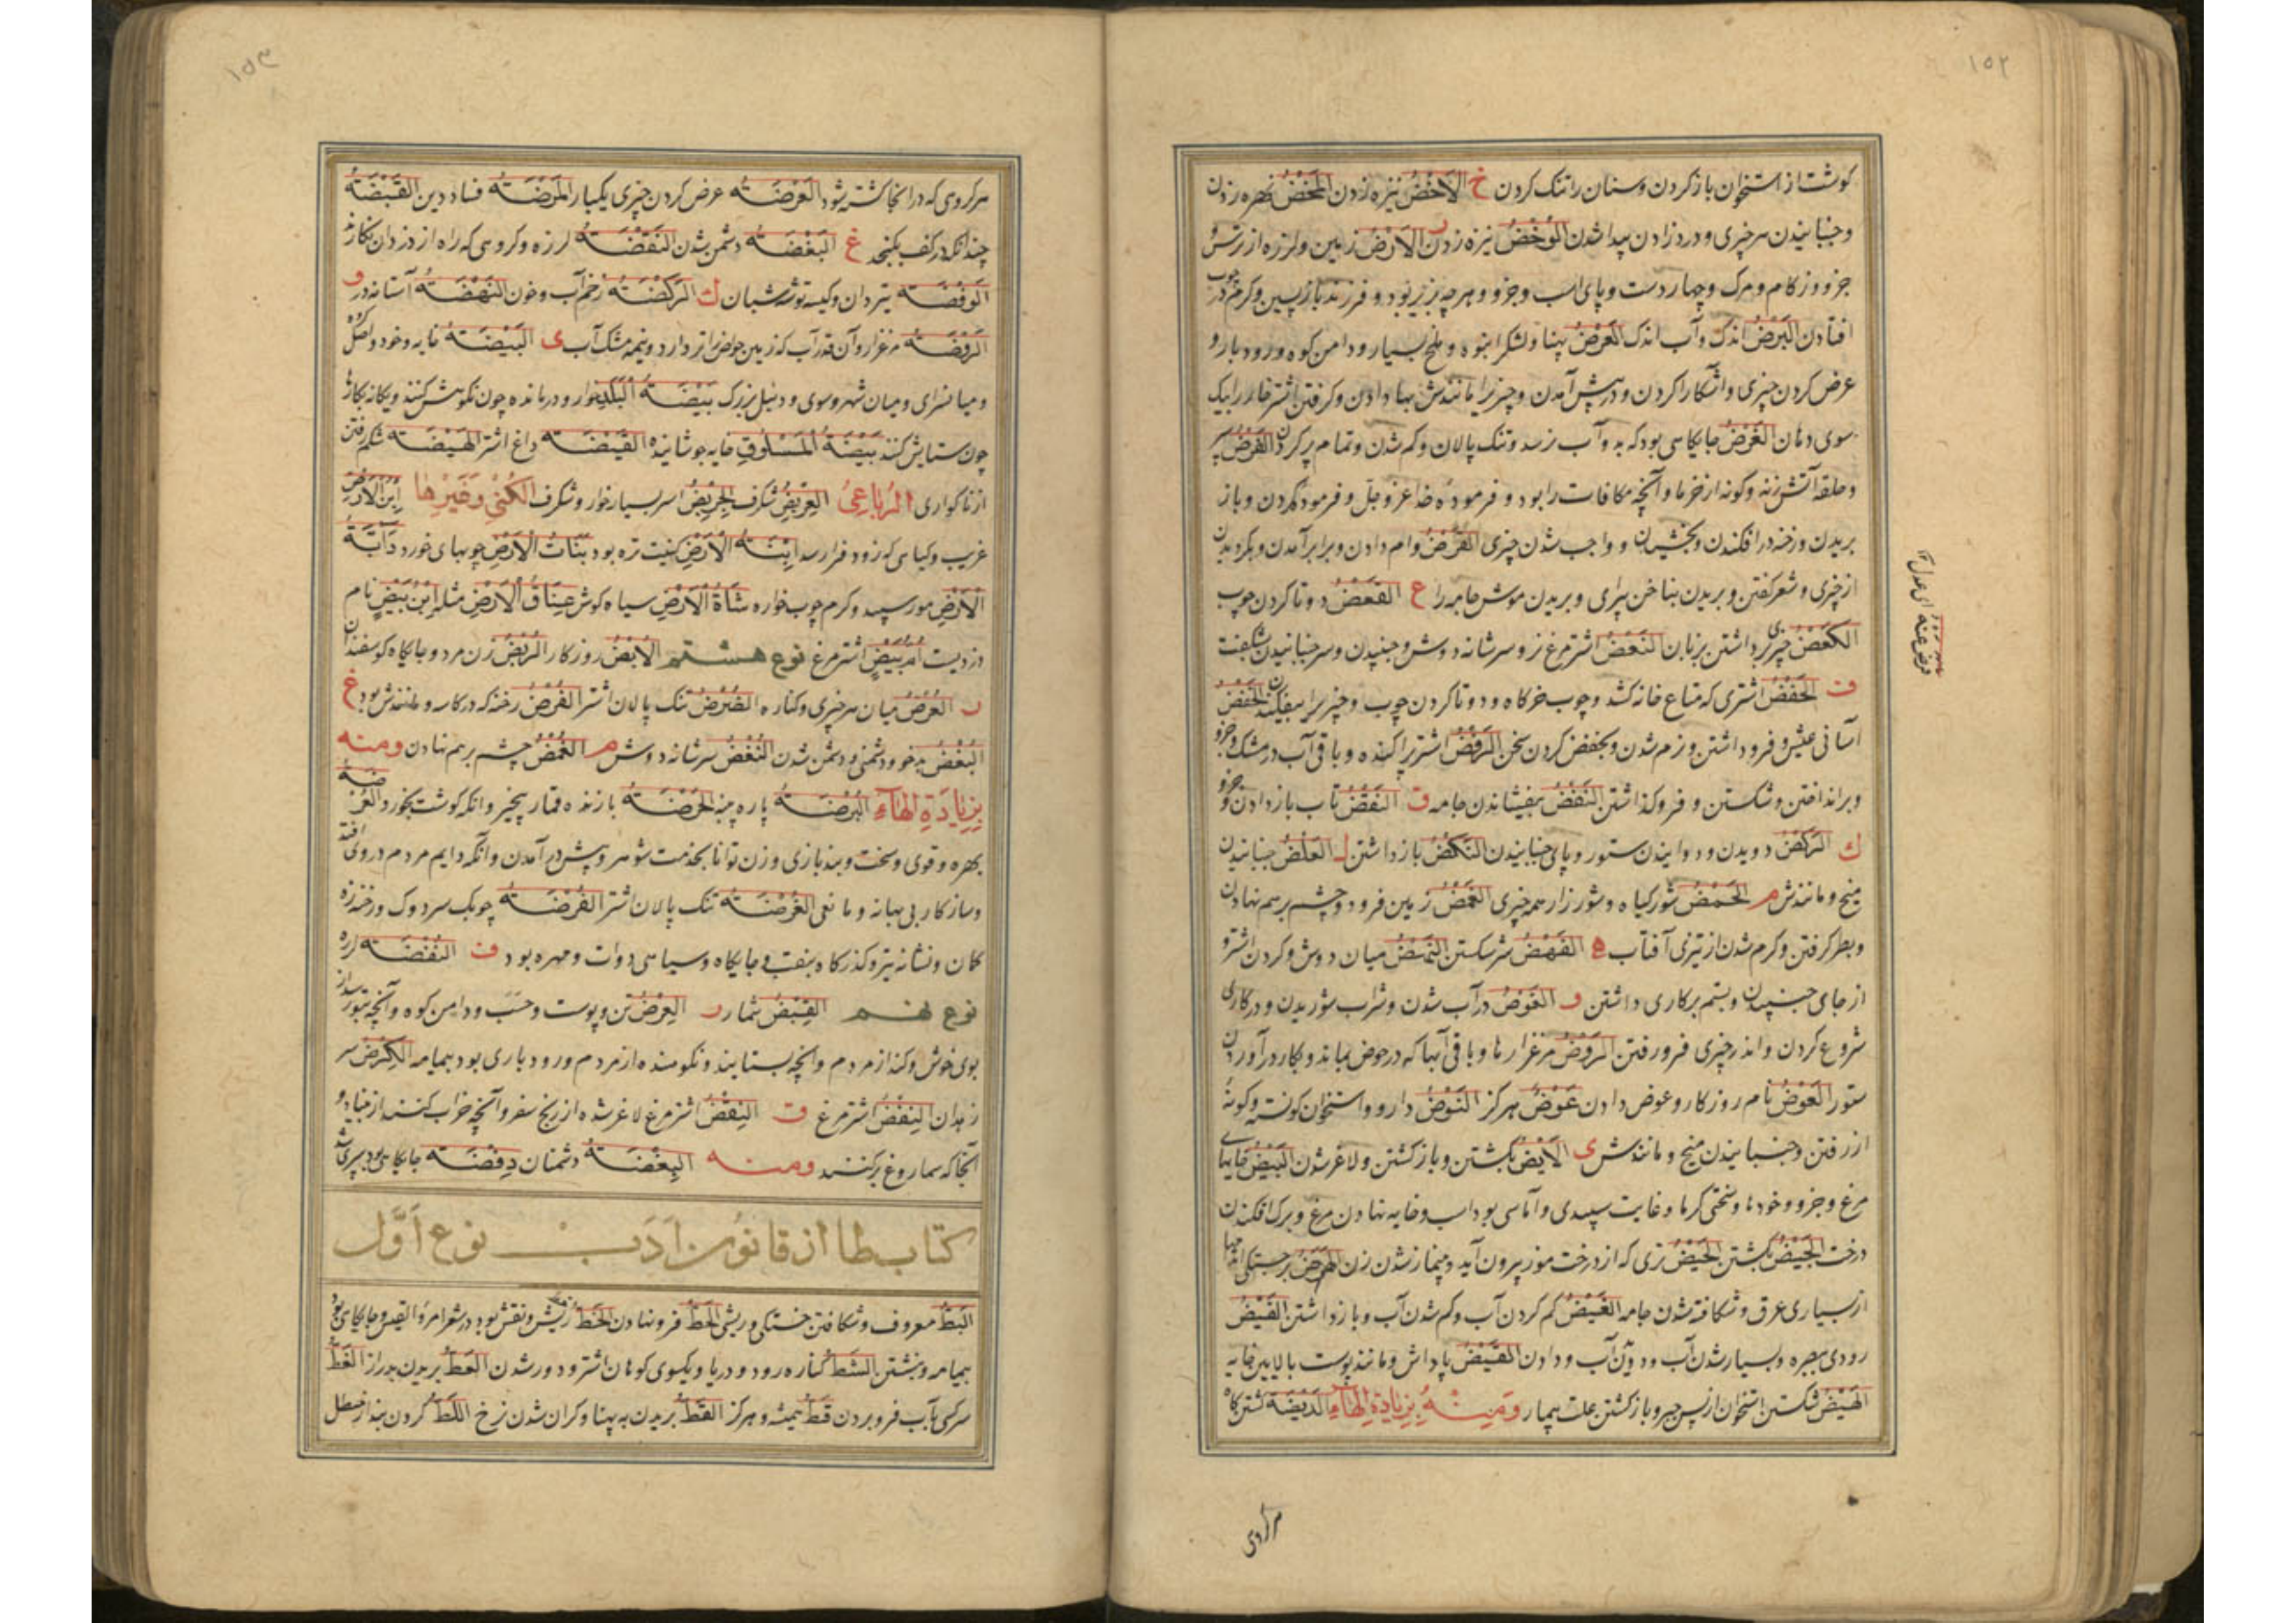 ١٥٢
كوشت از استخوان باز كردن و سنان را تنك كردن خ الاَخضُ نيزه زدن المَخضُ نهره زدن
و جنبانيدن هر چيزى و درد زادن پيدا شدن الوَخضُ نيزه زدن ر الاَرضُ زمين و لرزه از ترس
جز و زكام و مرك و چهار دست و پاى اسب و جزو و هر چه بزير بود و فرزند باز پسين و كرم در چوب
افتادن البَرضُ اندك و آب اندك العَرضُ پهنا و لشكر انبوه و ملخ بسيار و دامن كوه و رود بار و
عرض كردن چيزى و آشكارا كردن و در پيش آمدن و چيزيرا مانندش بها دادن و كرفتن اشتر خار را بيك
سوى دهان الغَرضُ جايكاهى بود كه بدو آب نرسد و تنك پالان و كم شدن و تمام پر كردن الفَرضُ سپر
و حلقه آتش زنه و كونه از خرما و آنچه مكافات را بود و فرموده خداى عز و جل و فرمود كردن و باز
بريدن و رخنه در افكندن و بخشيدن و واجب شدن چيزى القَرضُ وام دادن و برابر آمدن و بكرديدن
از چيزى و شعر كفتن و بريدن بناخن پيراى و بريدن موش جامه را ع القَعضُ دو تا كردن چوب
الكَعضُ چيزى داشتن بزبان النَعضُ اشتر مرغ نر و سر شانه دوش و جنبيدن و سر جنبانيدن بشكفت
ف الحَفضُ اشترى كه متاع خانه كشد و چوب خركاه و دو تا كردن چوب و چيزيرا بيفكندن الخَفضُ
آسانى عيش و فرو داشتن و نرم شدن و بخفض كردن سخن الرَفضُ اشتر پراكنده و باقى آب در مشك و جزو
و بر انداختن و شكستن و فرو كذاشتن النَفضُ بيفشاندن جامه ق النَقضُ تاب باز دادن و جزو
ك الرَكضُ دويدن و دوانيدن ستور و پاى جنبانيدن النَكضُ باز داشتن ل العَلضُ جنبانيدن
ميخ و مانندش م الحَمضُ شور كياه و شور زار همه چيزى الغَمضُ زمين فرود و چشم بر هم نهادن
و بطر كرفتن و كرم شدن از تيزى آفتاب ه الفَهضُ سر شكستن النَهضُ ميان دوش و كردن اشتر و
از جاى جنبيدن و بستم بر كارى داشتن و الخَوضُ در آب شدن و شراب شوريدن و در كارى
شروع كردن و اندر چيزى فرو رفتن الرَوضُ مرغزارها و باقى آبها كه در حوض بماند و بكار در آوردن
ستور العَوضُ نام روزكار و عوض دادن عَوضُ هركز النَوضُ دارو و استخوان كونسته و كونه
از رفتن و جنبانيدن ميخ و مانندش ى الاَيضُ بكشتن و باز كشتن و لاغر شدن البَيضُ خايهاى
مرغ و جزو و خودها و سختى كرما و غايت سپيدى و آماسى بود اسب و خايه نهادن مرغ و برك افكندن
درخت الجَيضُ بكشتن الحَيضُ نزى كه از درخت موز بيرون آيد و بينماز شدن زن الهرضُ برجستكى اندامها
از بسيارى عرق و شكافته شدن جامه الغَيضُ كم كردن آب و كم شدن آب و باز داشتن الفَيضُ
رودى ببصره و بسيار شدن آب و دويدن آب و دادن القَيضُ پاداش و مانند پوست بالايين خايه
الهَيضُ شكستن استخوان از پس جبر و باز كشتن علت بيمار ومنه بزيادة الهاء الدَيضَة كشتن كاه
عرض عنه اى عدل
هر كروى
١٥٣
هر كروى كه در انجا كشته شود العَرضَة عرض كردن چيزى يكبار المَرضَة فساد دين القَبضَة
چندانكه در كف بكنجد غ البَغضَة دشمن شدن النَفضَة لرزه و كروهى كه راه از دزدان نكاه دارند
الوَفضَة تيردان و كيسه توشه شبان ك الرَكضَة زخم آب و خون النَهضَة آستانه در و
الرَوضَة مرغزار و آن قدر آب كه زمين حوض را تر دارد و نيمه مشك آب ى البَيضَة خايه و خود و اصل كروه
و ميان سراى و ميان شهر و سوى و دنبل بزرك بَيضَةُ البَلَد خوار و درمانده چون نكوهش كنند و يكانه بكارها
چون ستايش كنند بَيضَةُ المَسلُوق خايه جوشانيده القَيضَة داغ اشتر الهَيضَة شكم رفتن
از ناكوارى الرُباعىُ العِرَيضُ شكرف الجِريَضُ اسر بسيار خوار و شكرف الكُنىٰ وغيرها اِبنُ الاَرض
غريب و كياهى كه زود فرا رسد اِبنَةُ الاَرض كنيت تره بود بَنَاتُ الاَرض جويهاى خورد دَابَّةُ
الاَرض مور سپيد و كرم چوب خواره شَاةُ الاَرض سياه كوش عَنَاقُ الاَرض مثله اِبنُ بَيض نام
دزديست اُمُّ بَيض اشتر مرغ نوع هشتم الاُبضُ روزكار الرُبضُ زن مرد و جايكاه كوسفندان
ر العُرضُ ميان هر چيزى و كناره الغُرضُ تنك پالان اشتر الفُرضُ رخنه كه در كاسه و مانندش بود غ
البُغضُ بد خو و دشمنى و دشمن شدن النُغضُ سر شانه دوش م الغُمضُ چشم بر هم نهادن ومنه
بزيادة الهاء البُرضَة پاره پيه الحُرضَة بازنده قمار بخير و انكه كوشت نخورد العُرضَة
بهره و قوى و سخت و بند بازى و زن توانا بخدمت شوهر و پيش در آمدن و آنكه دايم مردم در وى افتد
و ساز كار بى بهانه و مانعى الغُرضَة تنك پالان اشتر الفُرضَة چوبك سر دوك و رخنه زه
كمان و نشانه تير و كذركاه بنقب و جايكاه و سياهى دوات و مهره بود ف النُفضَة لرزه
نوع نهم القِبضُ شمار ر العِرضُ تن و پوست و حسب و دامن كوه و آنچه بتوراند
بوى خوش و كند از مردم و انچه بستايند و نكوهند از مردم و رود بارى بود بيمامه الكِرضُ سر
زهدان النِفضُ اشتر مرغ ق النِقضُ اشتر مرغ لاغر شده از رنج سفر و آنچه خراب كنند از بنياد و
آنجا كه سماروغ بر كنند ومنه البِغضَة دشمنان رِفضَة جايكاهى بود
كتاب طا از قانون ادب نوع اوّل
البَطُّ معروف و شكافتن خستكى و ريش الحَطُّ فرو نهادن الخَطُّ نبشتن و نقش بود در شعر امرؤ القيس و جايكاهى بود
بيمامه و نبشتن الشَطُّ كناره رود و دريا و يكسوى كوهان اشتر و دور شدن العَطُّ بريدن بدراز الغَطُّ
سر كسى بآب فرو بردن قَطُّ هميشه و هركز القَطُّ بريدن به پهنا و كران شدن نرخ اللَطُّ كردن بند از حنظل